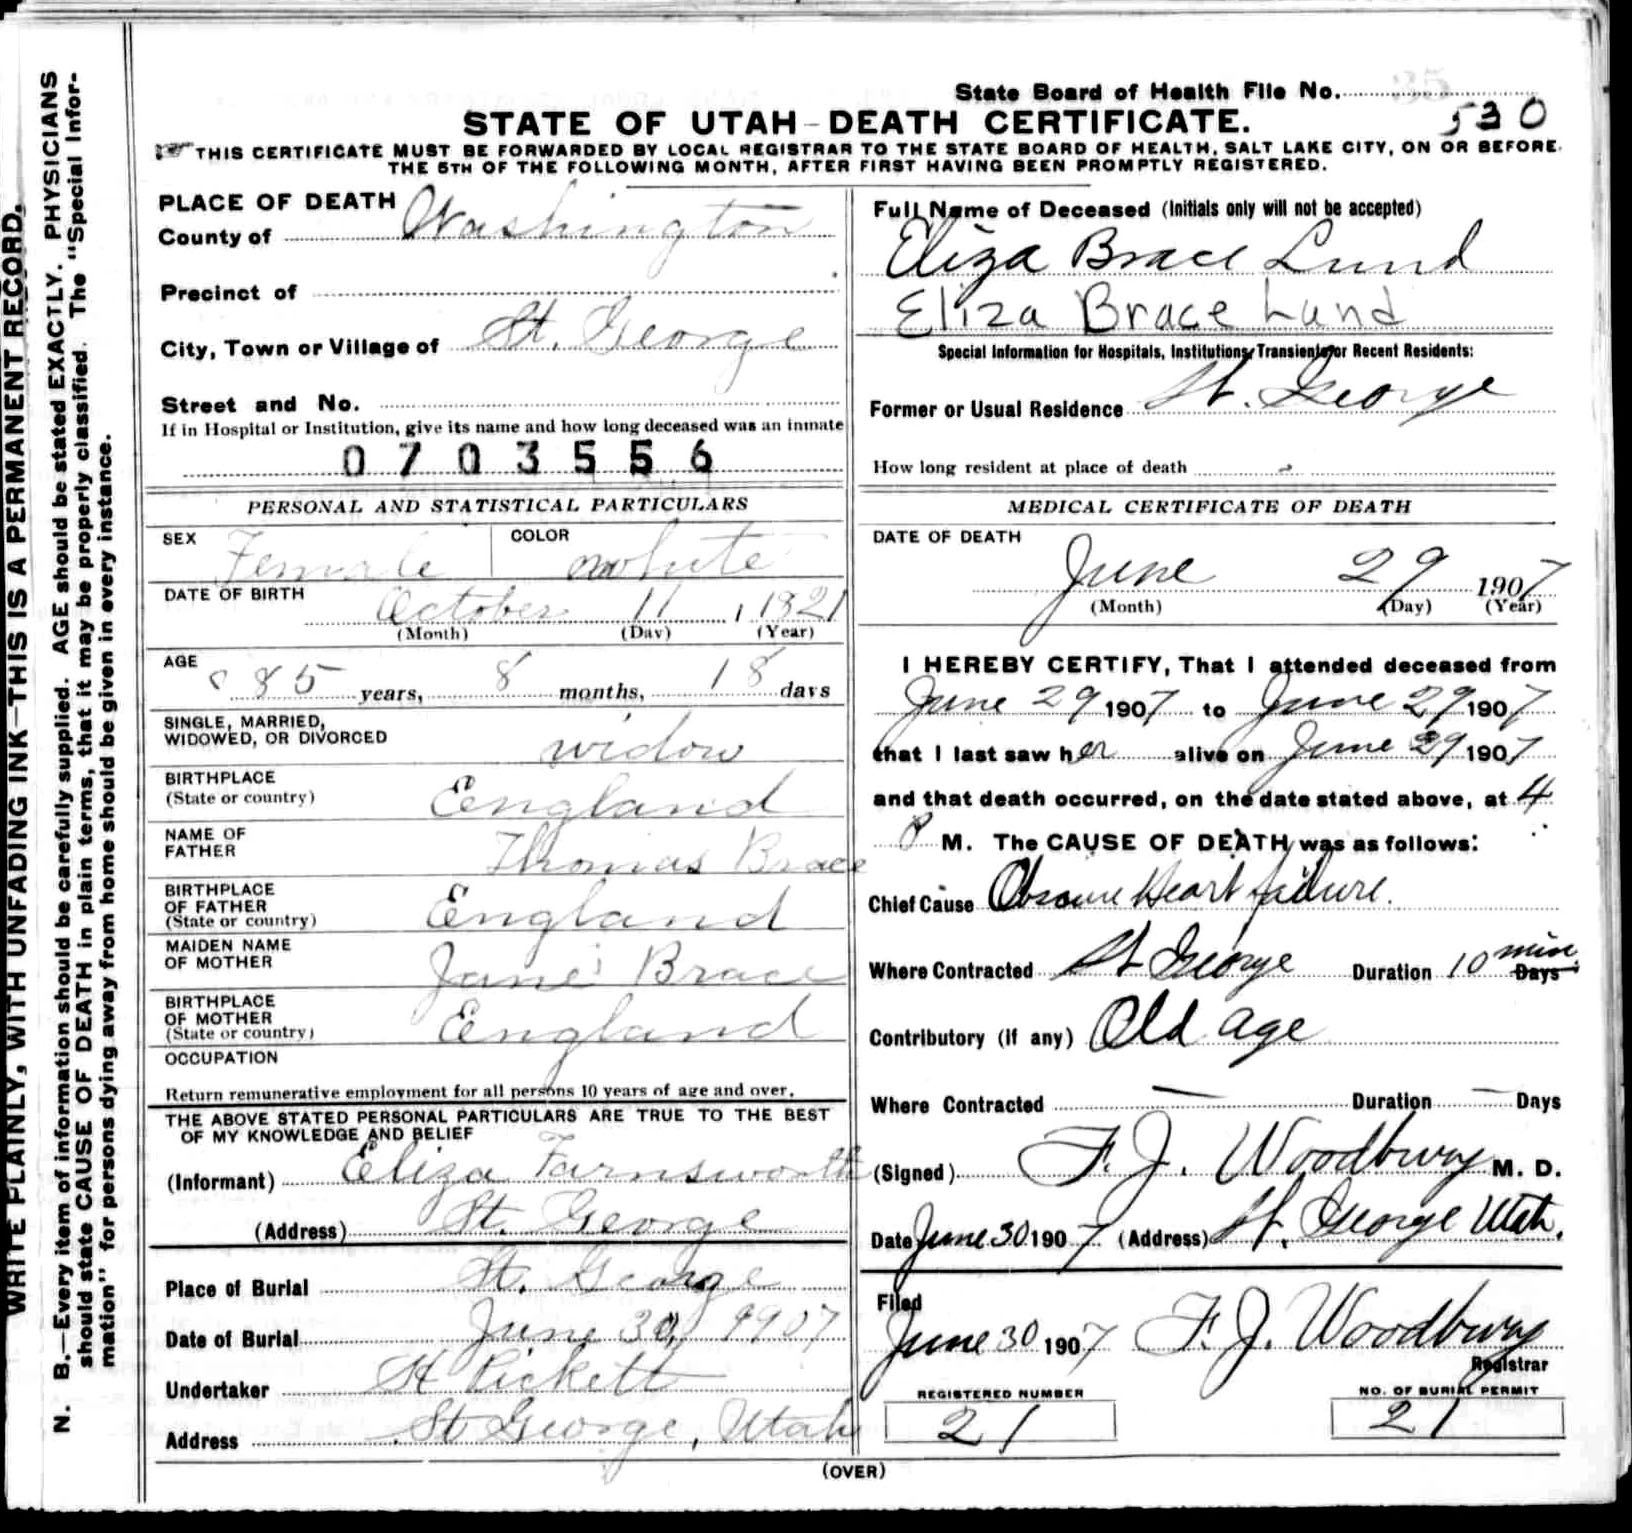 State Board of Health File No.
530
STATE OF UTAH-DEATH CERTIFICATE.
THIS CERTIFICATE MUST BE FORWARDED BY LOCAL REGISTRAR TO THE STATE BOARD OF HEALTH, SALT LAKE CITY, ON OR BEFORE
THE 5TH OF THE FOLLOWING MONTH, AFTER FIRST HAVING BEEN PROMPTLY REGISTERED.
PLACE OF DEATH
County of Washington
Precinct of
City, Town or Village of St. George
Street and No.
If in Hospital or Institution, give its name and how long deceased was an inmate
0703556
PERSONAL AND STATISTICAL PARTICULARS
SEX Female COLOR white
DATE OF BIRTH October 11, 1821
(Month) (Day) (Year)
AGE 85 years, 8 months, 18 days
SINGLE, MARRIED,
WIDOWED, OR DIVORCED widow
BIRTHPLACE
(State or country) England
NAME OF
FATHER Thomas Brace
BIRTHPLACE
OF FATHER
(State or country) England
MAIDEN NAME
OF MOTHER Jane Brace
BIRTHPLACE
OF MOTHER
(State or country) England
OCCUPATION
Return remunerative employment for all persons 10 years of age and over.
THE ABOVE STATED PERSONAL PARTICULARS ARE TRUE TO THE BEST
OF MY KNOWLEDGE AND BELIEF
(Informant) Eliza Farnsworth
(Address) St. George
Place of Burial St. George
Date of Burial June 30, 1907
Undertaker H Pickett
Address St George, Utah
Full Name of Deceased (Initials only will not be accepted)
Eliza Brace Lund
Eliza Brace Lund
Special Information for Hospitals, Institutions, Transients, or Recent Residents:
Former or Usual Residence St. George
How long resident at place of death
MEDICAL CERTIFICATE OF DEATH
DATE OF DEATH
June 29 1907
(Month) (Day) (Year)
I HEREBY CERTIFY, That I attended deceased from
June 29 1907 to June 29 1907
that I last saw her alive on June 29 1907
and that death occurred, on the date stated above, at 4
P M. The CAUSE OF DEATH was as follows:
Chief Cause Obscure Heart failure.
Where Contracted St George Duration 10 min. Days
Contributory (if any) Old age
Where Contracted — Duration — Days
(Signed) F. J. Woodbury M. D.
Date June 30 1907 (Address) St. George Utah.
Filed
June 30 1907 F. J. Woodbury
Registrar
REGISTERED NUMBER
21
NO. OF BURIAL PERMIT
21
(OVER)
WRITE PLAINLY, WITH UNFADING INK—THIS IS A PERMANENT RECORD.
N. B.—Every item of information should be carefully supplied. AGE should be stated EXACTLY. PHYSICIANS
should state CAUSE OF DEATH in plain terms, that it may be properly classified. The "Special Infor-
mation" for persons dying away from home should be given in every instance.